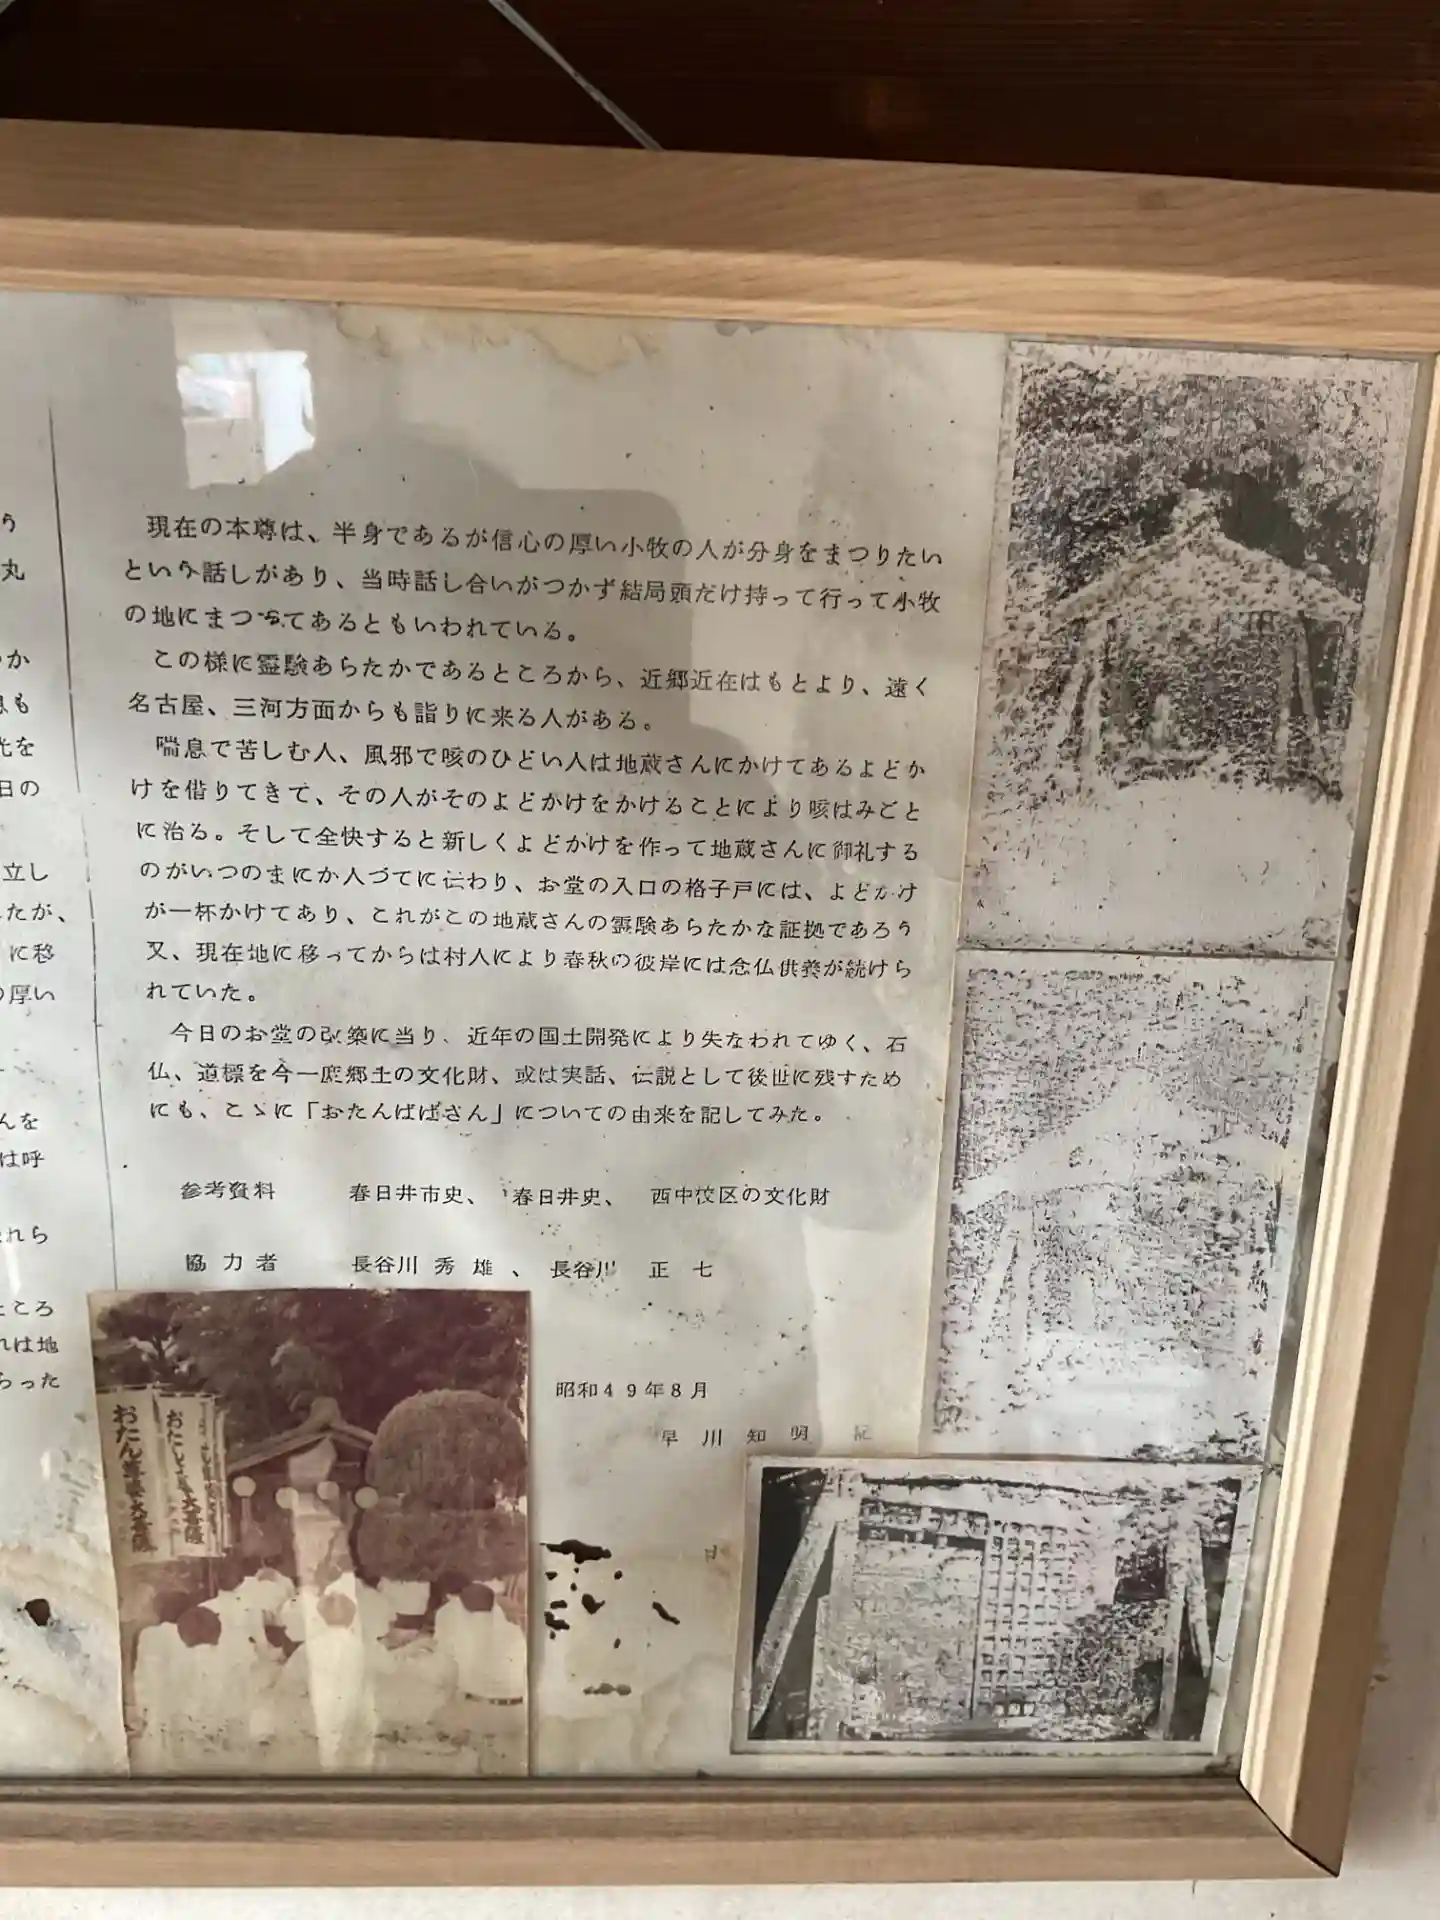 う
丸
か
息も
光を
日の
立し
たが、
に移
の厚い
んを
は呼
れら
ところ
れは地
らった
現在の本尊は、半身であるが信心の厚い小牧の人が分身をまつりたい
という話しがあり、当時話し合いがつかず結局頭だけ持って行って小牧
の地にまつってあるともいわれている。
この様に霊験あらたかであるところから、近郷近在はもとより、遠く
名古屋、三河方面からも詣りに来る人がある。
喘息で苦しむ人、風邪で咳のひどい人は地蔵さんにかけてあるよどか
けを借りてきて、その人がそのよどかけをかけることにより咳はみごと
に治る。そして全快すると新しくよどかけを作って地蔵さんに御礼する
のがいつのまにか人づてに伝わり、お堂の入口の格子戸には、よどかけ
が一杯かけてあり、これがこの地蔵さんの霊験あらたかな証拠であろう
又、現在地に移ってからは村人により春秋の彼岸には念仏供養が続けら
れていた。
今日のお堂の改築に当り、近年の国土開発により失なわれてゆく、石
仏、道標を今一度郷土の文化財、或は実話、伝説として後世に残すため
にも、こゝに「おたんばばさん」についての由来を記してみた。
参考資料 春日井市史、 春日井史、 西中校区の文化財
協力者 長谷川秀雄、長谷川正七
昭和49年8月
早川知明 記